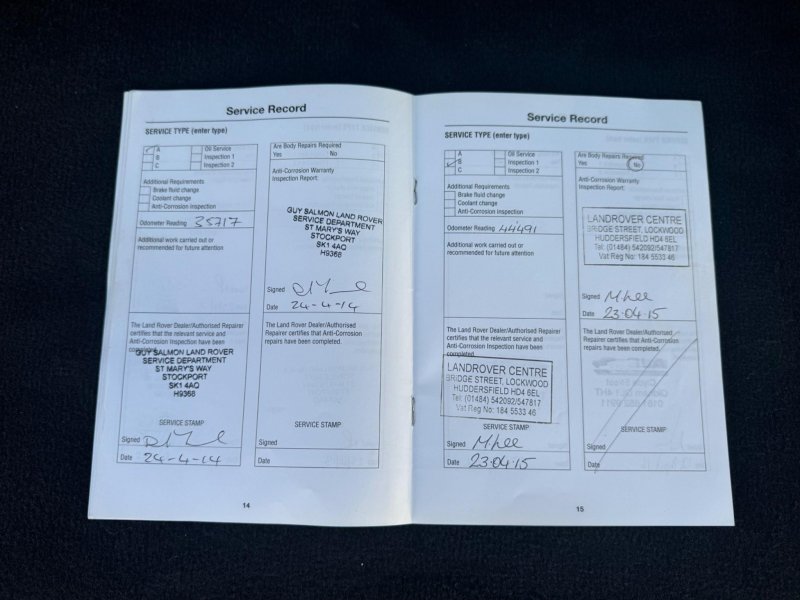 Service Record
SERVICE TYPE (enter type)
A Oil Service
B Inspection 1
C Inspection 2
Additional Requirements
Brake fluid change
Coolant change
Anti-Corrosion inspection
Odometer Reading 35717
Additional work carried out or
recommended for future attention
The Land Rover Dealer/Authorised Repairer
certifies that the relevant service and
Anti-Corrosion Inspection have been
completed.
GUY SALMON LAND ROVER
SERVICE DEPARTMENT
ST MARY'S WAY
STOCKPORT
SK1 4AQ
H9368
SERVICE STAMP
Signed
Date 24-4-14
Are Body Repairs Required
Yes No
Anti-Corrosion Warranty
Inspection Report:
GUY SALMON LAND ROVER
SERVICE DEPARTMENT
ST MARY'S WAY
STOCKPORT
SK1 4AQ
H9368
Signed
Date 24-4-14
The Land Rover Dealer/Authorised
Repairer certifies that Anti-Corrosion
repairs have been completed.
SERVICE STAMP
Signed
Date
14
Service Record
SERVICE TYPE (enter type)
A Oil Service
B Inspection 1
C Inspection 2
Additional Requirements
Brake fluid change
Coolant change
Anti-Corrosion inspection
Odometer Reading 44491
Additional work carried out or
recommended for future attention
The Land Rover Dealer/Authorised Repairer
certifies that the relevant service and
Anti-Corrosion Inspection have been
completed.
LANDROVER CENTRE
BRIDGE STREET, LOCKWOOD
HUDDERSFIELD HD4 6EL
Tel: (01484) 542092/547817
Vat Reg No: 184 5533 46
SERVICE STAMP
Signed M Lee
Date 23.04.15
Are Body Repairs Required
Yes No
Anti-Corrosion Warranty
Inspection Report:
LANDROVER CENTRE
BRIDGE STREET, LOCKWOOD
HUDDERSFIELD HD4 6EL
Tel: (01484) 542092/547817
Vat Reg No: 184 5533 46
Signed M Lee
Date 23.04.15
The Land Rover Dealer/Authorised
Repairer certifies that Anti-Corrosion
repairs have been completed.
SERVICE STAMP
Signed
Date
15